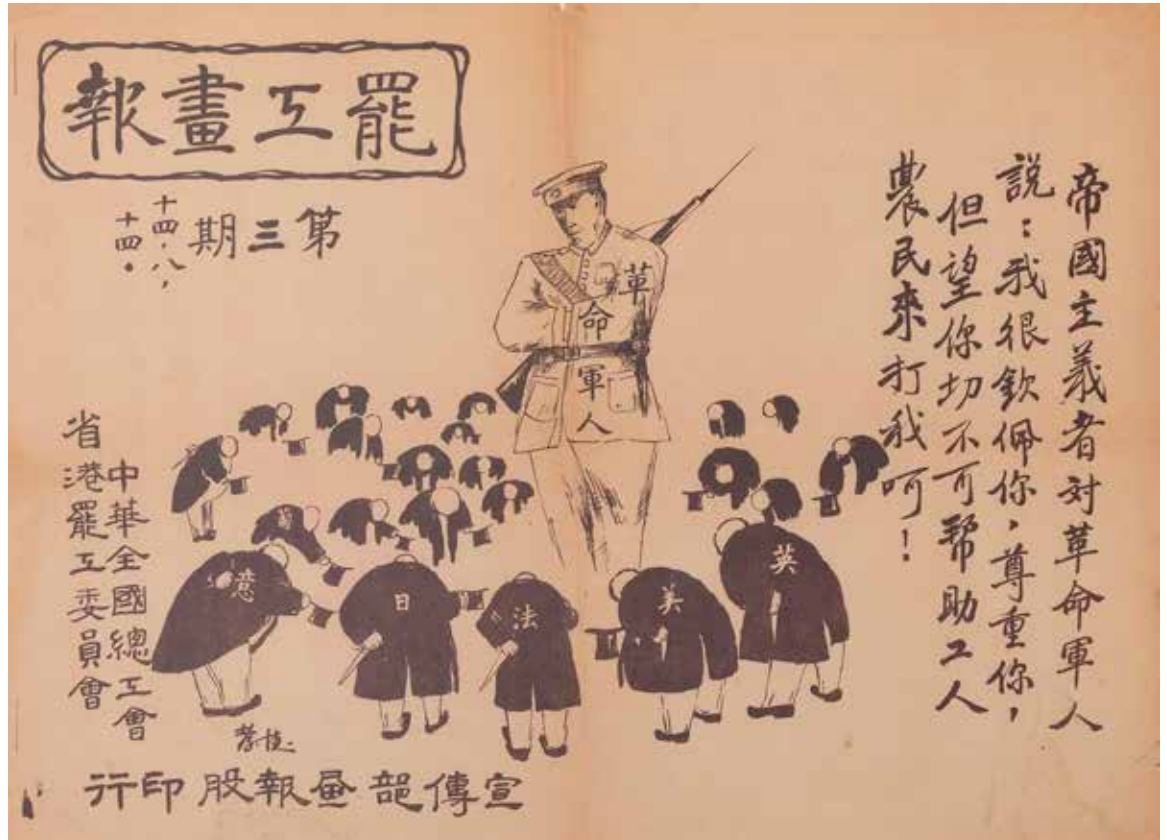 罷工畫報
第三期
十四·八，
十四·
帝國主義者对革命軍人
説：我很欽佩你，尊重你，
但望你切不可帮助工人
農民來打我呵！
革命軍人
英
美
法
日
意
中華全國總工會
省港罷工委員會
宣傳部畫報股印行